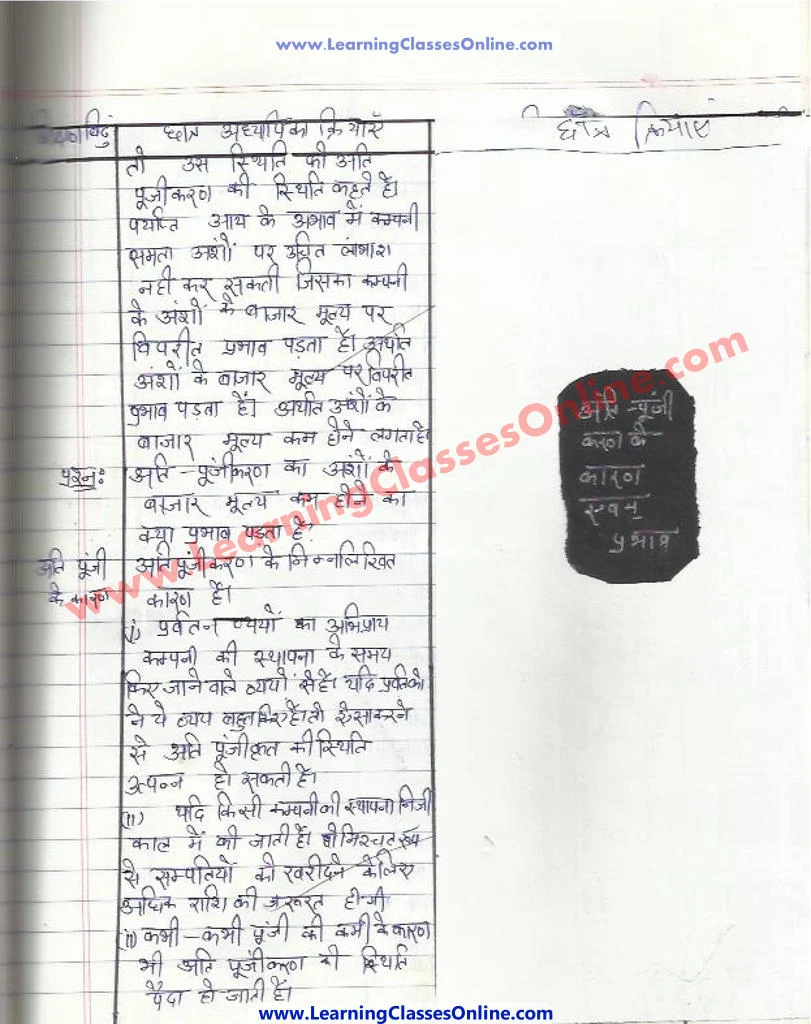 www.LearningClassesOnline.com
शिक्षण बिंदु छात्र अध्यापिका क्रियाएँ छात्र क्रियाएं
तो उस स्थिति को अति
पूंजीकरण की स्थिति कहते हैं।
पर्याप्त आय के अभाव में कम्पनी
समता अंशों पर उचित लाभांश
नही कर सकती जिसका कम्पनी
के अंशों के बाजार मूल्य पर
विपरीत प्रभाव पड़ता है। अर्थात
अंशों के बाजार मूल्य पर विपरीत
प्रभाव पड़ता हैं। अर्थात अंशों के
बाजार मूल्य कम होने लगता है।
प्रश्न: अति-पूंजीकरण का अंशों के
बाजार मूल्य कम होने का
क्या प्रभाव पड़ता है?
अति पूंजी अतिपूंजीकरण के निम्नलिखित
के कारण कारण हैं।
i) प्रर्वतन व्ययों का अभिप्राय
कम्पनी की स्थापना के समय
किए जाने वाले व्ययों से है। यदि प्रर्वतकों
ने ये व्यय बहुत किए है। तो ऐसा करने
से अति पूंजीकृत की स्थिति
उत्पन्न हो सकती है।
(ii) यदि किसी कम्पनी की स्थापना निजी
काल में की जाती है। तो निश्चत रूप
से सम्पतियों को खरीदने के लिए
अधिक राशि की जरूरत होगी
(ii) कभी-कभी पूंजी की कमी के कारण
भी अति पूंजीकरण की स्थिति
पैदा हो जाती है।
अति-पूंजी
करण के
कारण
एवम्
प्रभाव
www.LearningClassesOnline.com
www.LearningClassesOnline.com